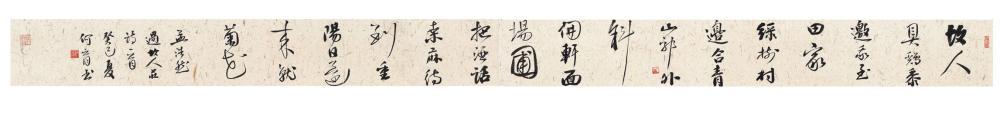 故人
具鷄黍
邀我至
田家
綠樹村
邊合青
山郭外
斜
開軒面
場圃
把酒話
桑麻待
到重
陽日還
來就
菊花
孟浩然
過故人庄
詩一首
癸巳夏
何 书